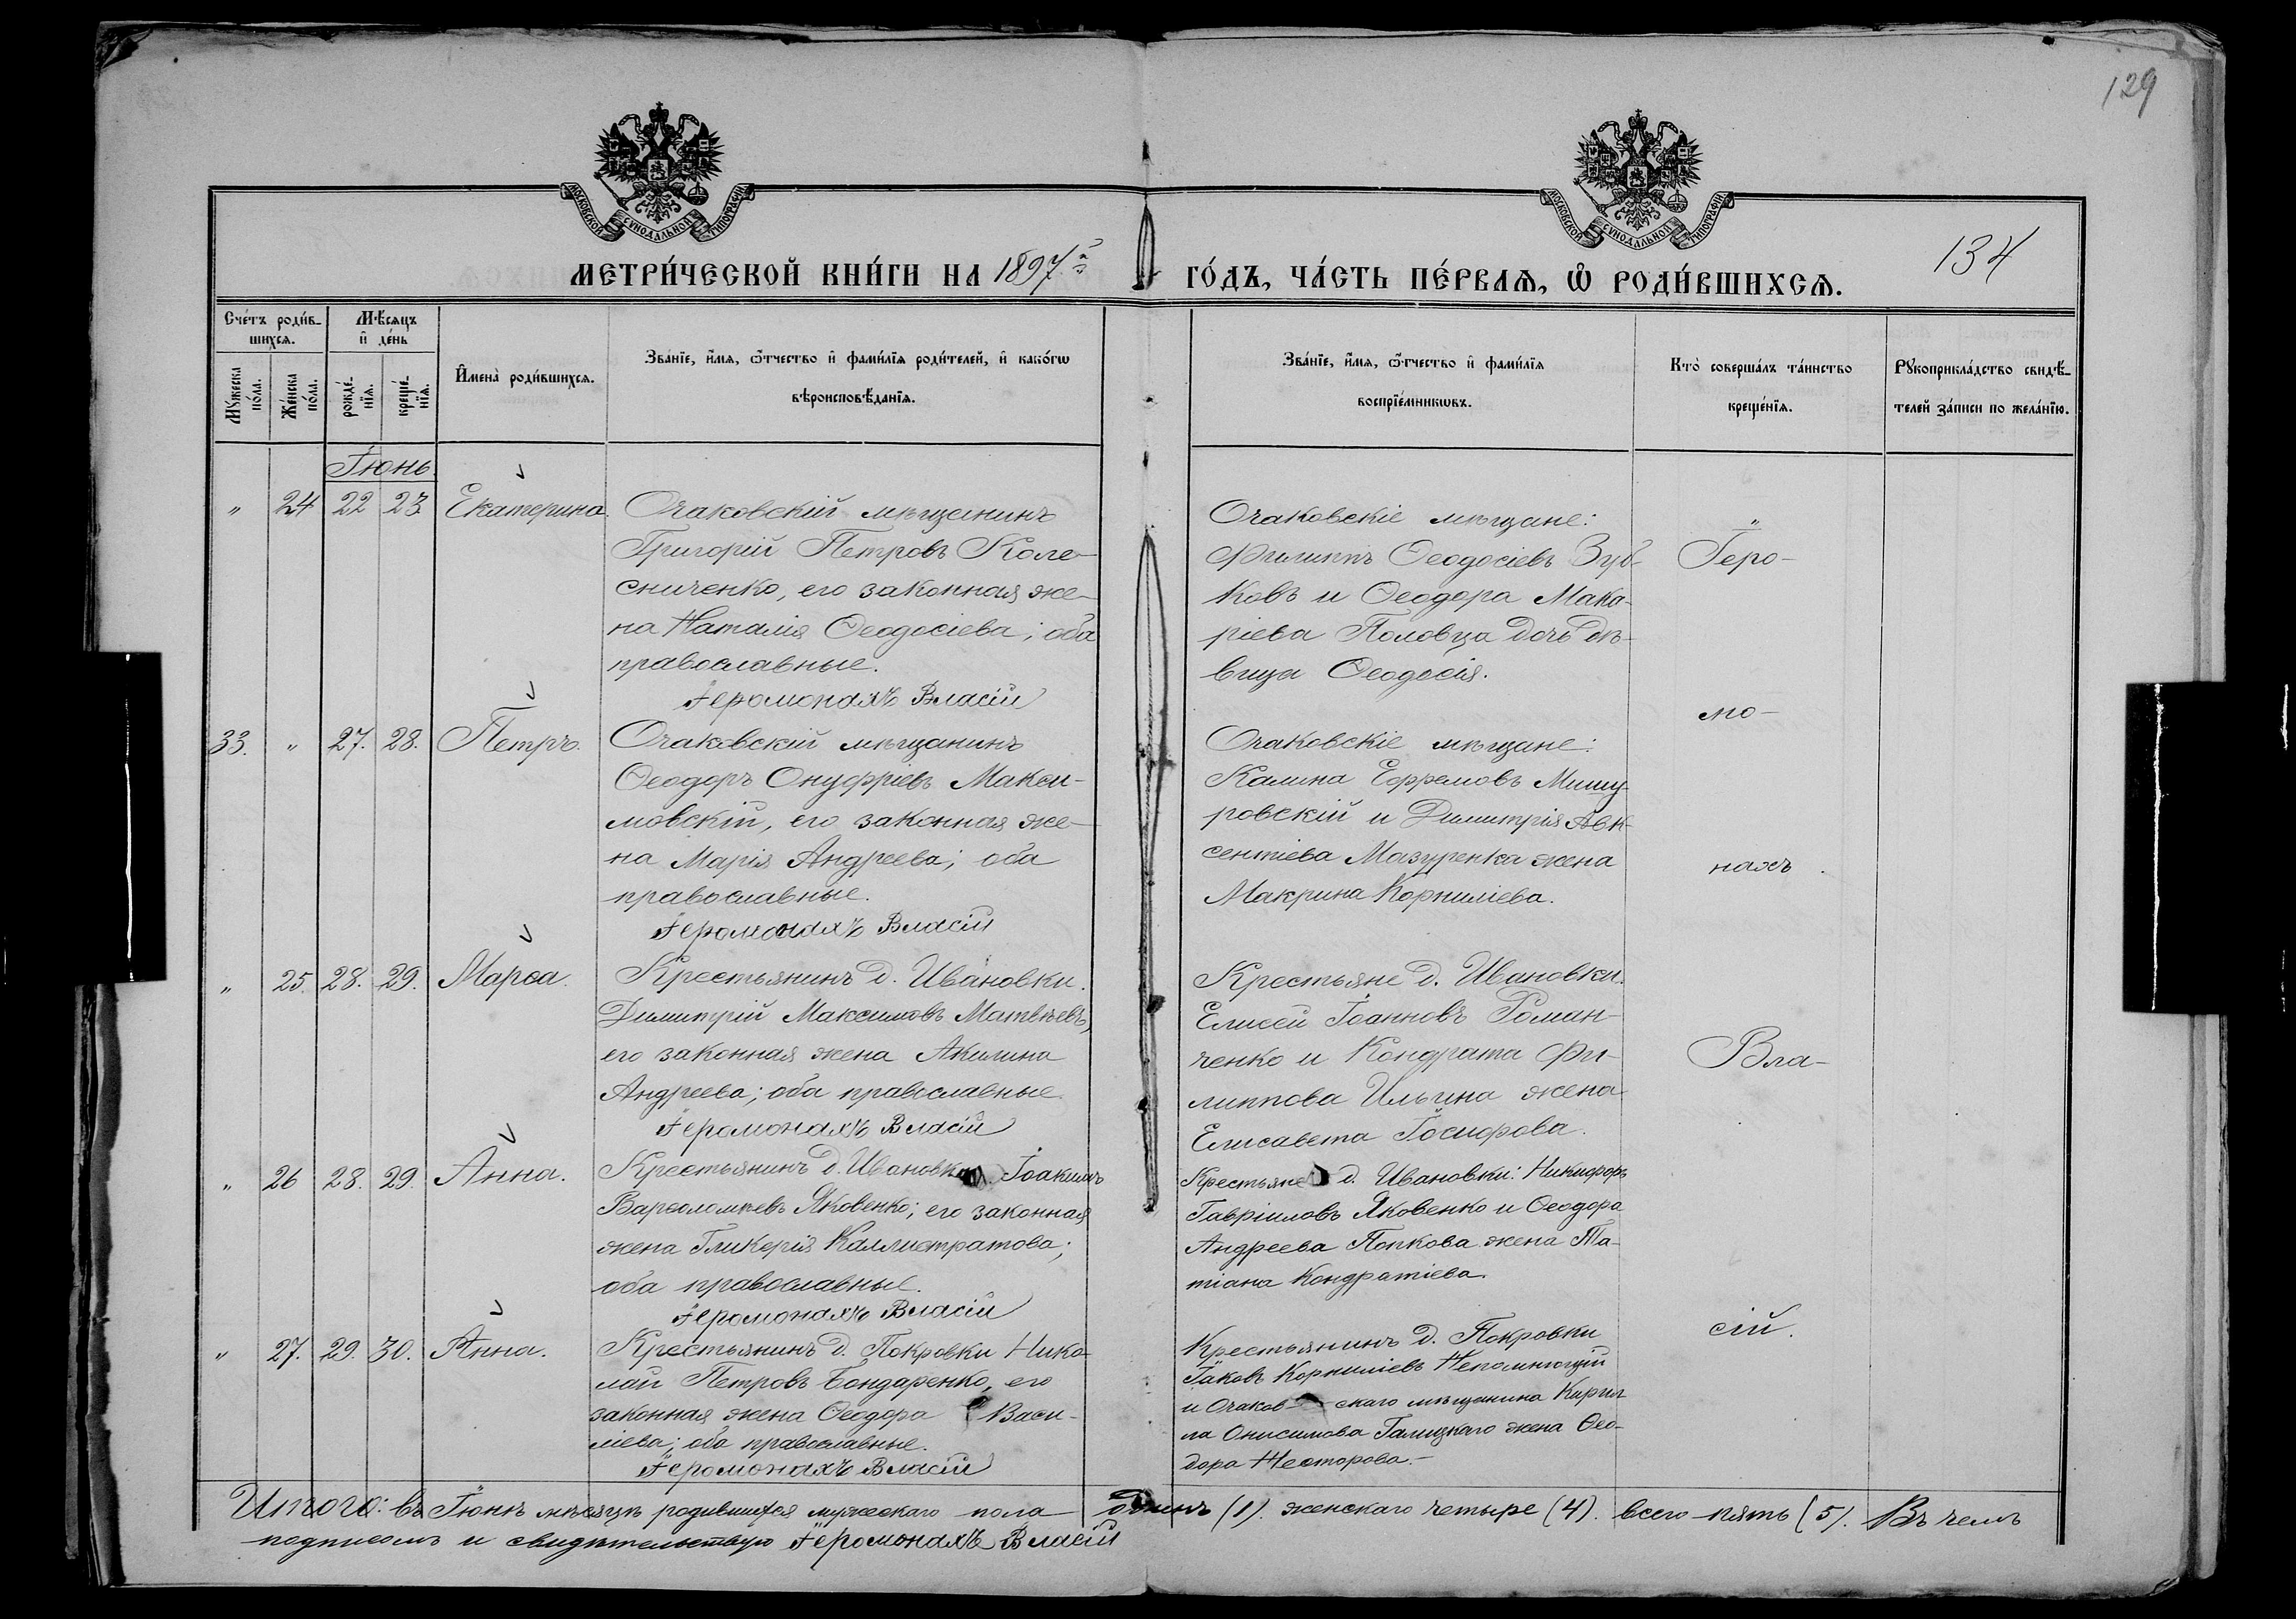 129
МОСКОВСКОЙ СѴНОДАЛЬНОЙ ТИПОГРАФІИ
МОСКОВСКОЙ СѴНОДАЛЬНОЙ ТИПОГРАФІИ
134
МЕТРИ́ЧЕСКОЙ КНИ́ГИ НА 1897й ГО́ДЪ, ЧА́СТЬ ПЕ́РВАѦ, Ѽ РОДИ́ВШИХСѦ.
Сче́тъ роди́в-
шихсѧ.
Мѣ́сѧцъ
и҆ де́нь
Мꙋ́жеска
по́ла.
Же́нска
по́ла.
рожде́-
нїѧ.
креще́-
нїѧ.
И҆мена̀ роди́вшихсѧ.
Зва́нїе, и҆́мѧ, ѻ҆́тчество и҆ фами́лїѧ роди́телей, и҆ како́гѡ
вѣроисповѣ́данїѧ.
Зва́нїе, и҆́мѧ, ѻ҆́тчество и҆ фами́лїѧ
воспрїе́мникѡвъ.
Кто̀ соверша́лъ та́инство
креще́нїѧ.
Рꙋкоприкла́дство свидѣ́-
телей за́писи по жела́нїю.
Іюнь
" 24 22 23 Екатерина.
Очаковскій мѣщанинъ
Григорій Петровъ Коле-
сниченко, его законная же-
на Наталія Ѳеодосіева; оба
православные.
Іеромонахъ Власій
Очаковскіе мѣщане:
Филиппъ Ѳеодосіевъ Зуб-
ковъ и Ѳеодора Мака-
ріева Половца дочь дѣ-
вица Ѳеодосія.
33. " 27. 28. Петръ.
Очаковскій мѣщанинъ
Ѳеодоръ Онуфріевъ Макси-
мовскій, его законная же-
на Марія Андреева; оба
православные.
Іеромонахъ Власій
Очаковскіе мѣщане:
Калина Ефремовъ Мишу-
ровскій и Димитрія Авк-
сентіева Мазуренка жена
Макрина Корниліева.
" 25. 28. 29. Марѳа.
Крестьянинъ д. Ивановки.
Димитрій Максимовъ Матвѣевъ,
его законная жена Акилина
Андреева; оба православные
Іеромонахъ Власій
Крестьяне д. Ивановки.
Елисей Іоанновъ Роман-
ченко и Кондрата Фи-
липпова Ильина жена
Елисавета Іосифова.
" 26 28. 29. Анна.
Крестьянинъ д. Ивановки. Іоакимъ
Варѳоломѣевъ Яковенко; его законная
жена Гликерія Каллистратова;
оба православные.
Іеромонахъ Власій
Крестьяне д. Ивановки: Никифоръ
Гавріиловъ Яковенко и Ѳеодора
Андреева Попкова жена Та-
тіана Кондратіева.
" 27. 29. 30. Анна.
Крестьянинъ д. Покровки Нико-
лай Петровъ Бондаренко, его
законная жена Ѳеодора Васи-
ліева; оба православные.
Іеромонахъ Власій
Крестьянинъ д. Покровки
Іаковъ Корниліевъ Непомнющій
и Очаков-скаго мѣщанина Кирил-
ла Онисимова Галицкаго жена Ѳео-
дора Несторова.-
Іеро-
мо-
нахъ
Вла-
сій.
Итого: въ Іюнѣ мѣсяцѣ родившихся мужескаго пола одинъ (1). женскаго четыре (4). всего пять (5). Въ чемъ
подписомъ и свидѣтельствую Іеромонахъ Власій